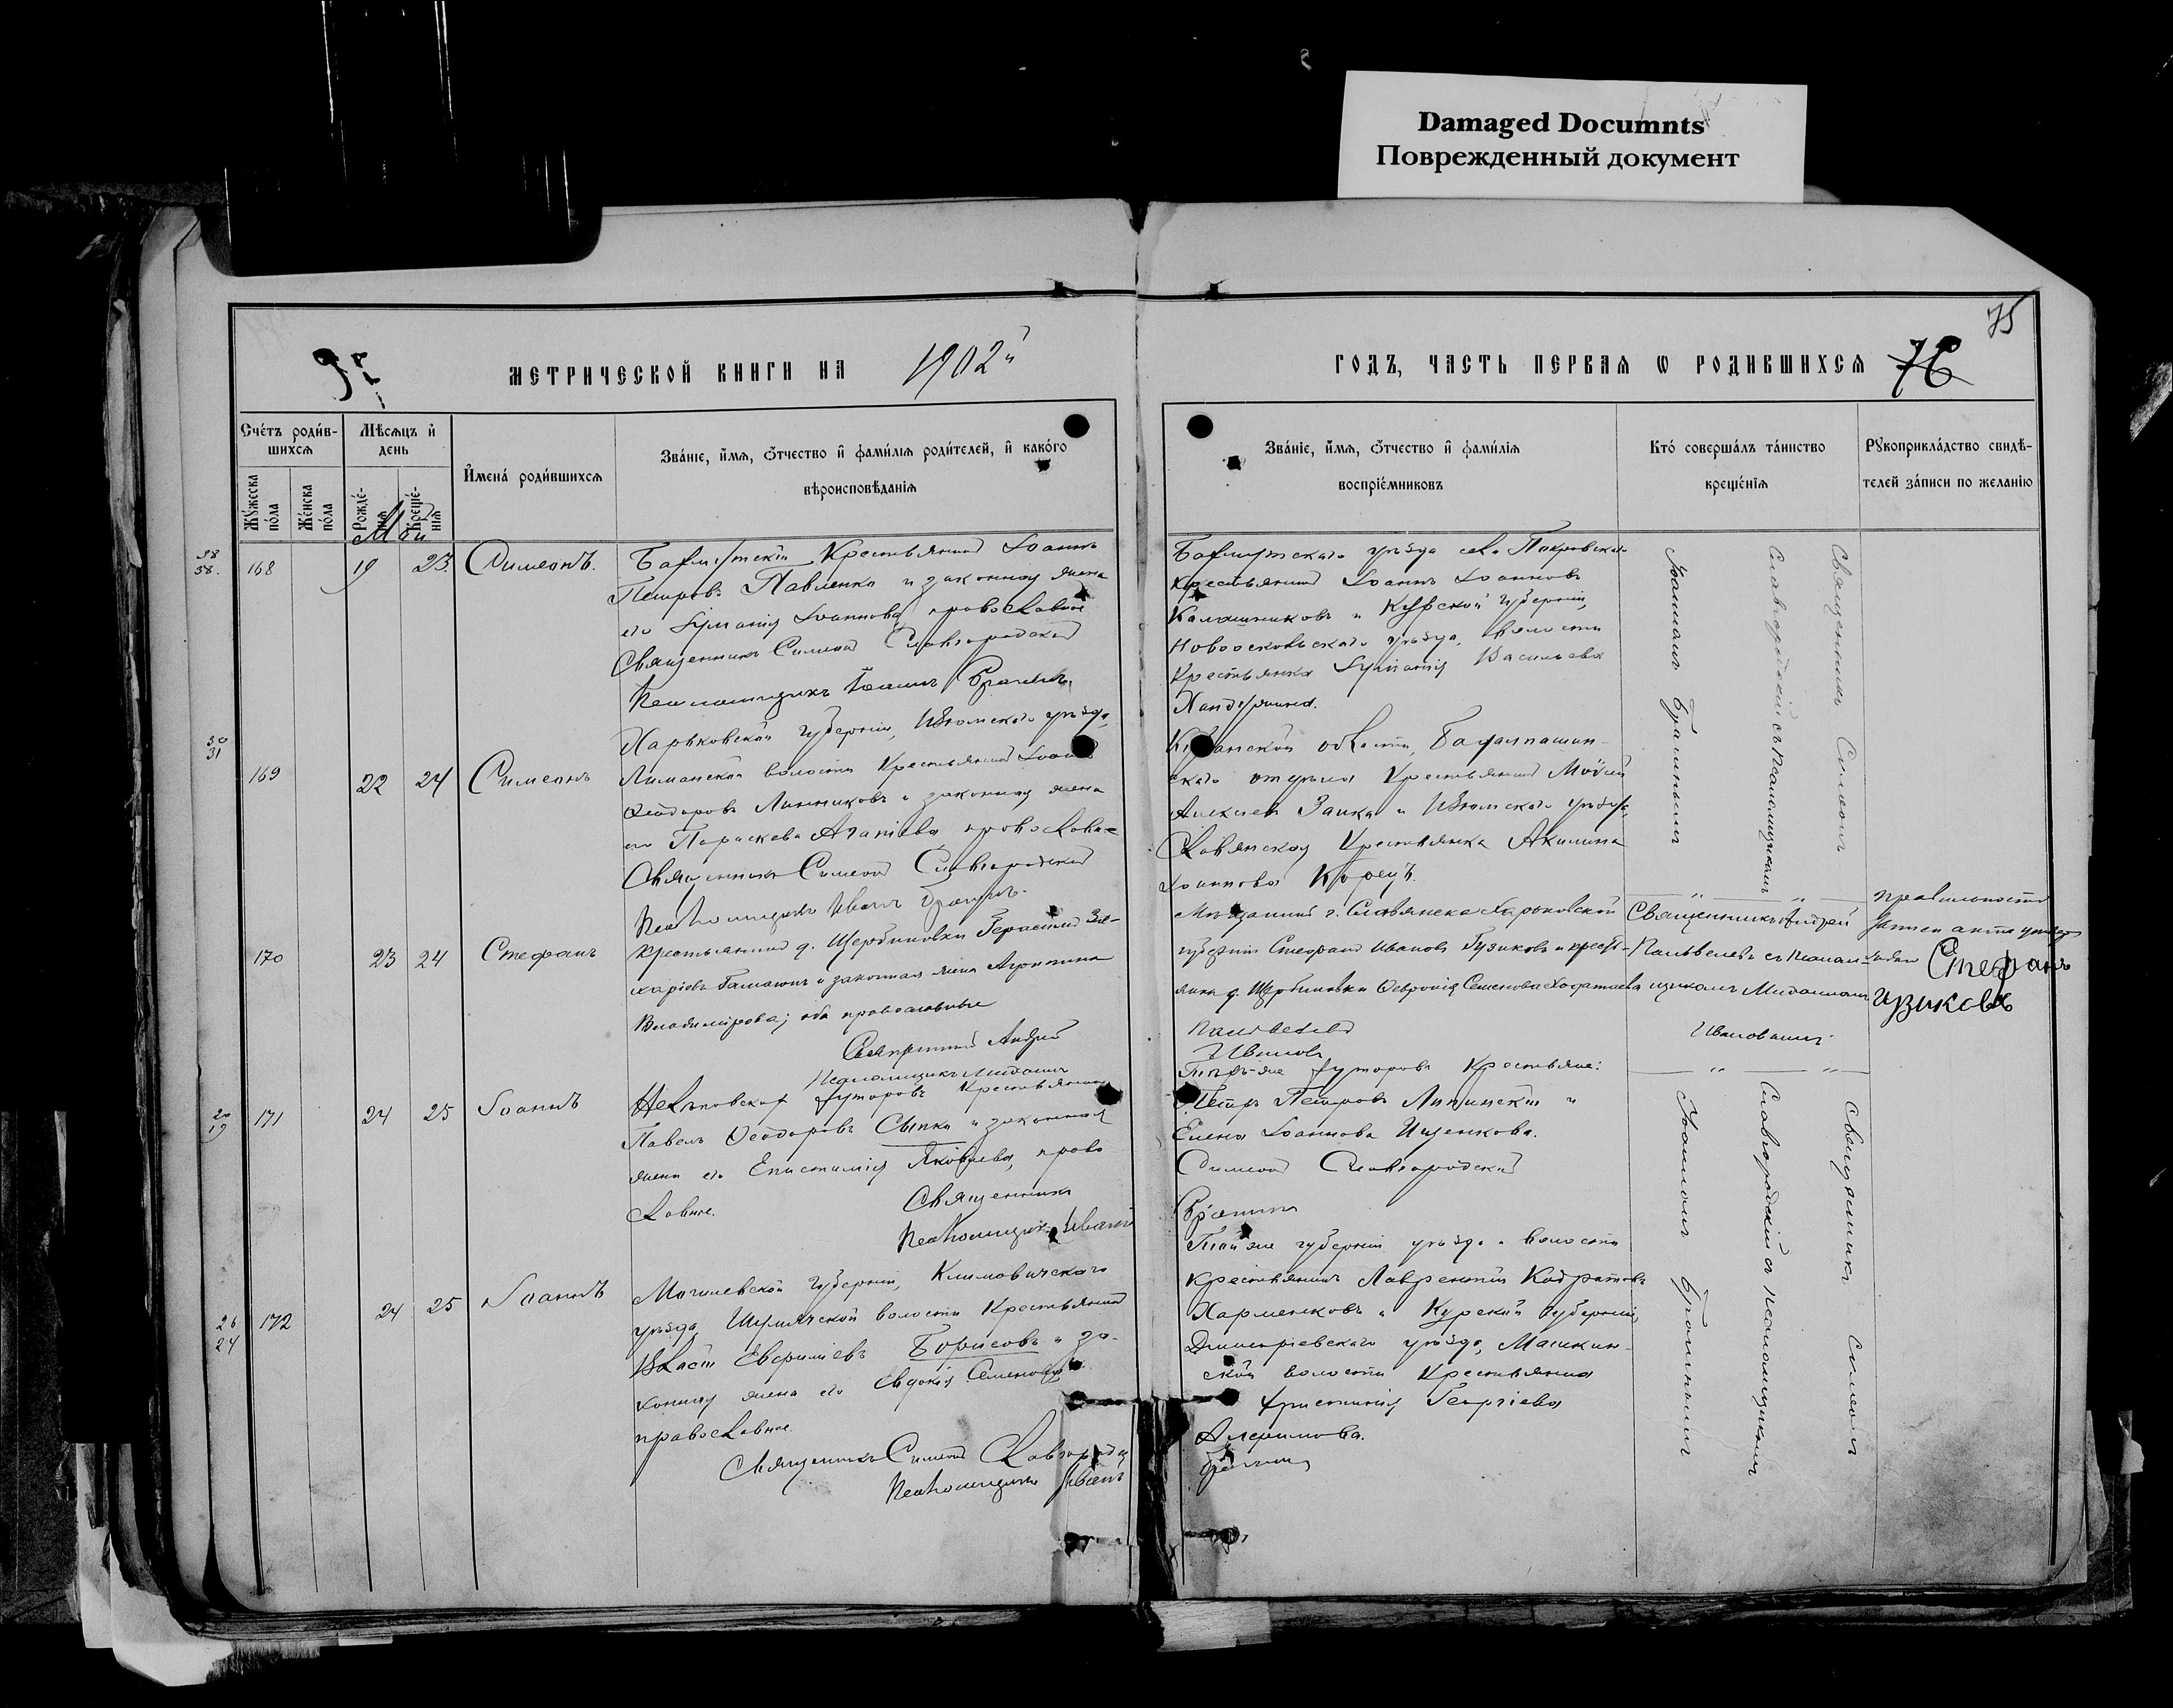 Damaged Documnts
Поврежденный документ
75
МЕТРИЧЕСКОЙ КНИГИ НА 1902й
ГОДЪ, ЧАСТЬ ПЕРВАЯ Ѡ РОДИВШИХСЯ 76
Счéтъ роди́в-
шихсѧ
Мѣ́сѧцъ и҆
день
Мýжеска
по́ла
Же́нска
по́ла
Рожде́-
нїѧ
Креще́-
нїѧ
Май
И҆мена́ роди́вшихсѧ
Зва́нїе, и҆́мѧ, ѻ҆́тчество и҆ фами́лїѧ роди́телей, и҆ како́го
вѣроисповѣ́данїѧ
Зва́нїе, и҆́мѧ, ѻ҆́тчество и҆ фами́лїѧ
воспрїе́мниковъ
Кто̀ соверша́лъ та́инство
креще́нїѧ
Рꙋкоприкла́дство свидѣ́-
телей за́писи по жела́нїю
38
38.
168
19
23.
Симеонъ.
Бахмутскій Крестьянинъ Іоаннъ
Петровъ Павленко и законная жена
его Іоаннова, православные
Священникъ Симеонъ Славгородскій
Псаломщикъ Іоаннъ Брагинъ.
Бахмутскаго уѣзда села Покровскаго
Крестьянинъ Іоаннъ Іоанновъ
Калашниковъ и Курской губерніи,
Новооскольскаго уѣзда, волости
Крестьянка Васильева
Священникъ Симеонъ
Славгородскій съ Псаломщикомъ
Іоанномъ Брагинымъ
30
31
169
22
24
Симеонъ
Харьковской губерніи, Изюмскаго уѣзда,
Лиманской волости Крестьянинъ Іоаннъ
Ѳеодоровъ Линниковъ и законная жена
его Параскева Агапіева, православные
Священникъ Симеонъ Славгородскій
Псаломщикъ Иванъ Брагинъ.
Кубанской области, Баталпашин-
скаго отдѣла Крестьянинъ Моисей
Алексѣевъ Заика и Изюмскаго уѣзда,
Славянская Крестьянка Акилина
Іоаннова Корецъ.
170
23
24
Стефанъ
Крестьянинъ д. Щербиновки Герасимъ За-
харіевъ и законная жена Агриппина
Владимірова; оба православные
Священникъ Андрей
Псаломщикъ Михаилъ
Мѣщанинъ г. Славянска Харьковской
губерніи Стефанъ Ивановъ Гузиковъ и кресть-
янка д. Щербиновки Февронія Семенова
Ивановъ
Священникъ Андрей
съ Псалом-
щикомъ Михаиломъ
Ивановымъ
правильность
записи акта
Стефанъ
Гузиковъ
20
19
171
24
25
Іоаннъ
Нелѣповскихъ хуторовъ Крестьянинъ
Павелъ Ѳеодоровъ Сыпко и законная
жена его Епистимія Яковлева, право
славные.
Священникъ
Псаломщикъ Иванъ
Тѣхъ-же хуторовъ Крестьяне:
Петръ Петровъ Липинскій и
Елена Іоаннова Ищенкова.
Симеонъ Славгородскій
Брагинъ
Священникъ Симеонъ
Славгородскій съ Псаломщикомъ
Іоанномъ Брагинымъ
26
24
172
24
25
Іоаннъ
Могилевской губерніи, Климовичскаго
уѣзда, Шумячской волости Крестьянинъ
Власій Евфиміевъ Борисовъ и за-
конная жена его Евдокія Семенова,
православные.
Священникъ Симеонъ Славгородскій
Псаломщикъ Иванъ
Той же губерніи уѣзда и волости
Крестьянинъ Лаврентій Кодратовъ
Харменковъ и Курской губерніи,
Дмитріевскаго уѣзда, Машкин-
ской волости Крестьянка
Христинія Георгіева
Алфимова.
Брагинъ